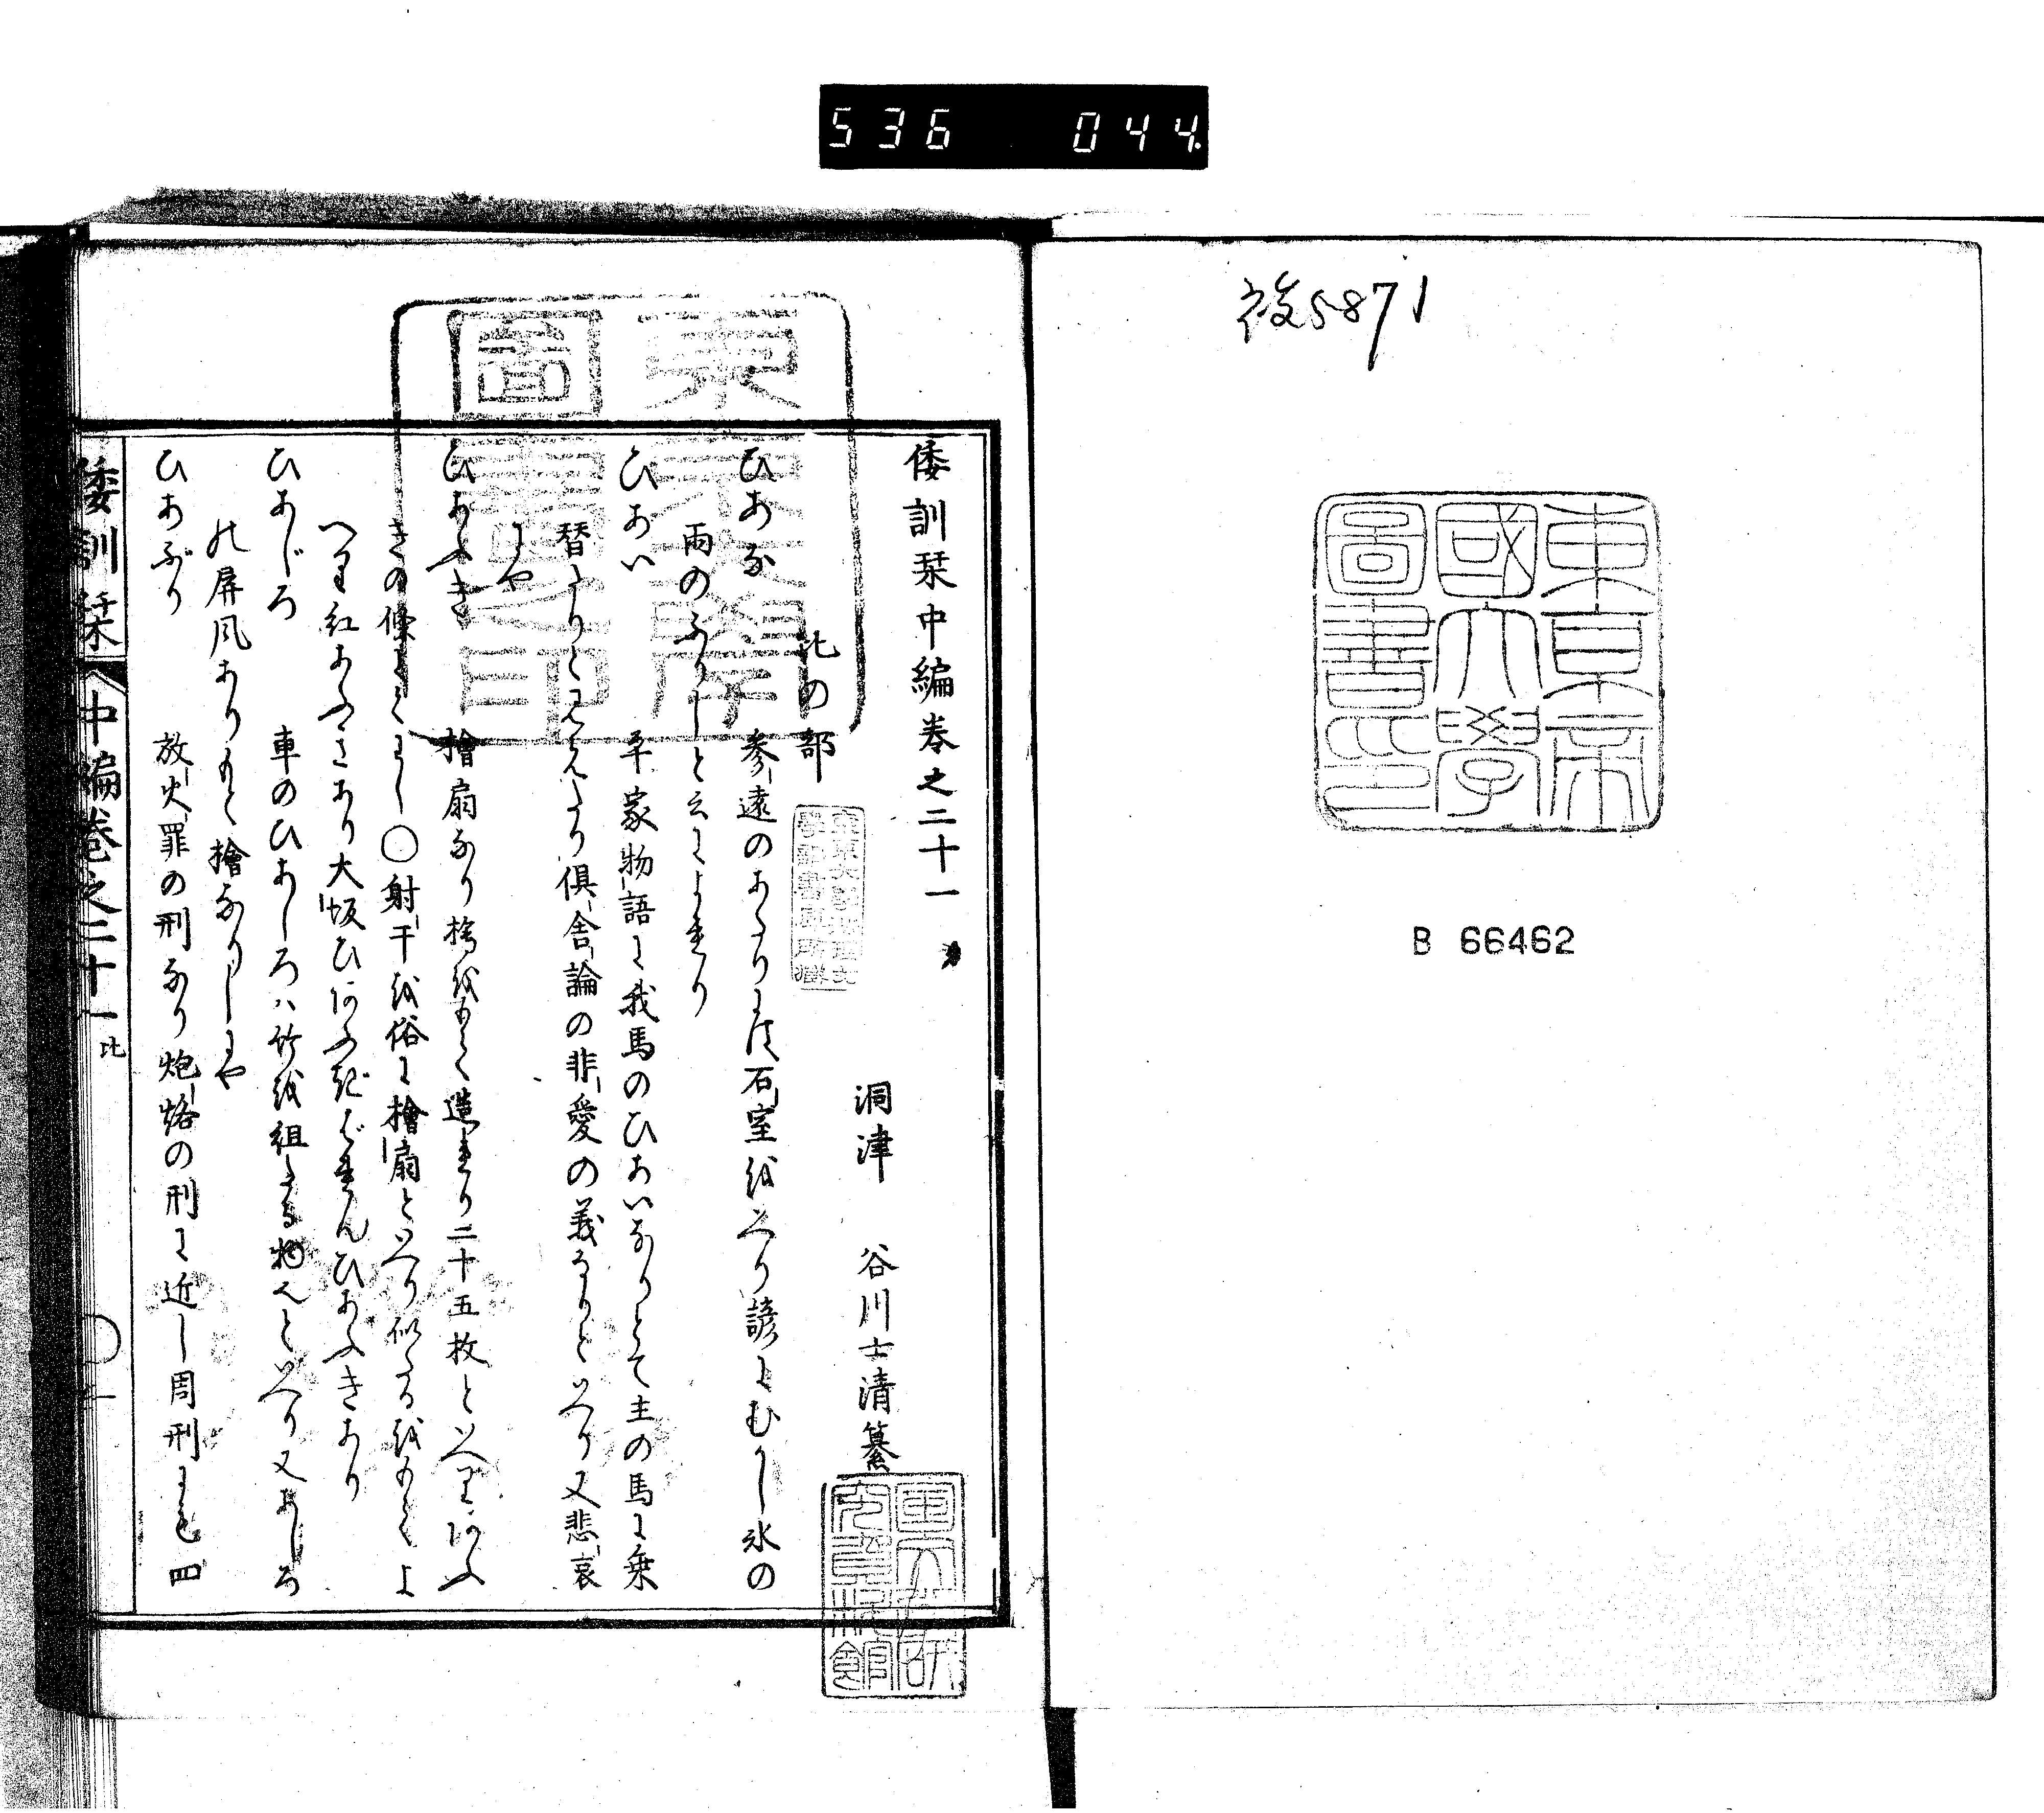 536 044
複5871
東京帝
國大學
圖書印
B 66462
倭訓栞中編巻之二十一
洞津 谷川士清纂
比の部
ひあな 参遠のあたりに石室をいへり諺にむかし氷の
雨のふりしと云によれり
ひあい 平家物語に我馬のひあいなりとて主の馬に乗
替たりと見えたり倶舎論の非愛の義なりといへり又悲哀
にや
ひあふぎ 檜扇なり檜をもて造れり二十五枚といへりあふ
きの條にくはし〇射干を俗に檜扇といへり似たるをもてよ
へり紅あふきあり大坂ひあふぎばれんひあふきあり
ひあじろ 車のひあじろは竹を組たる物也といへり又あしろ
の屏風あり檜なりしにや
ひあぶり 放火罪の刑なり炮烙の刑に近し周刑にも四
倭訓栞 中編巻之二十一 比
東京帝
大學
圖書印